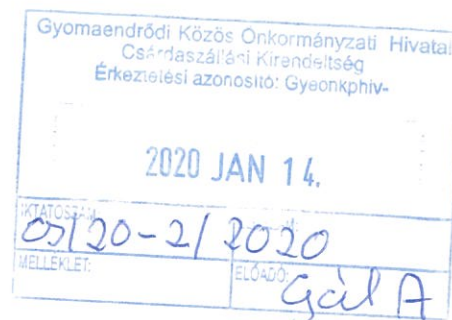 Gyomaendrődi Közös Önkormányzati Hivatal
Csárdaszállási Kirendeltség
Érkeztetési azonosító: Gyeonkphiv-
2020 JAN 14.
IKTATÓSZÁM
/20-2/2020
MELLÉKLET: ELŐADÓ:
Gál A